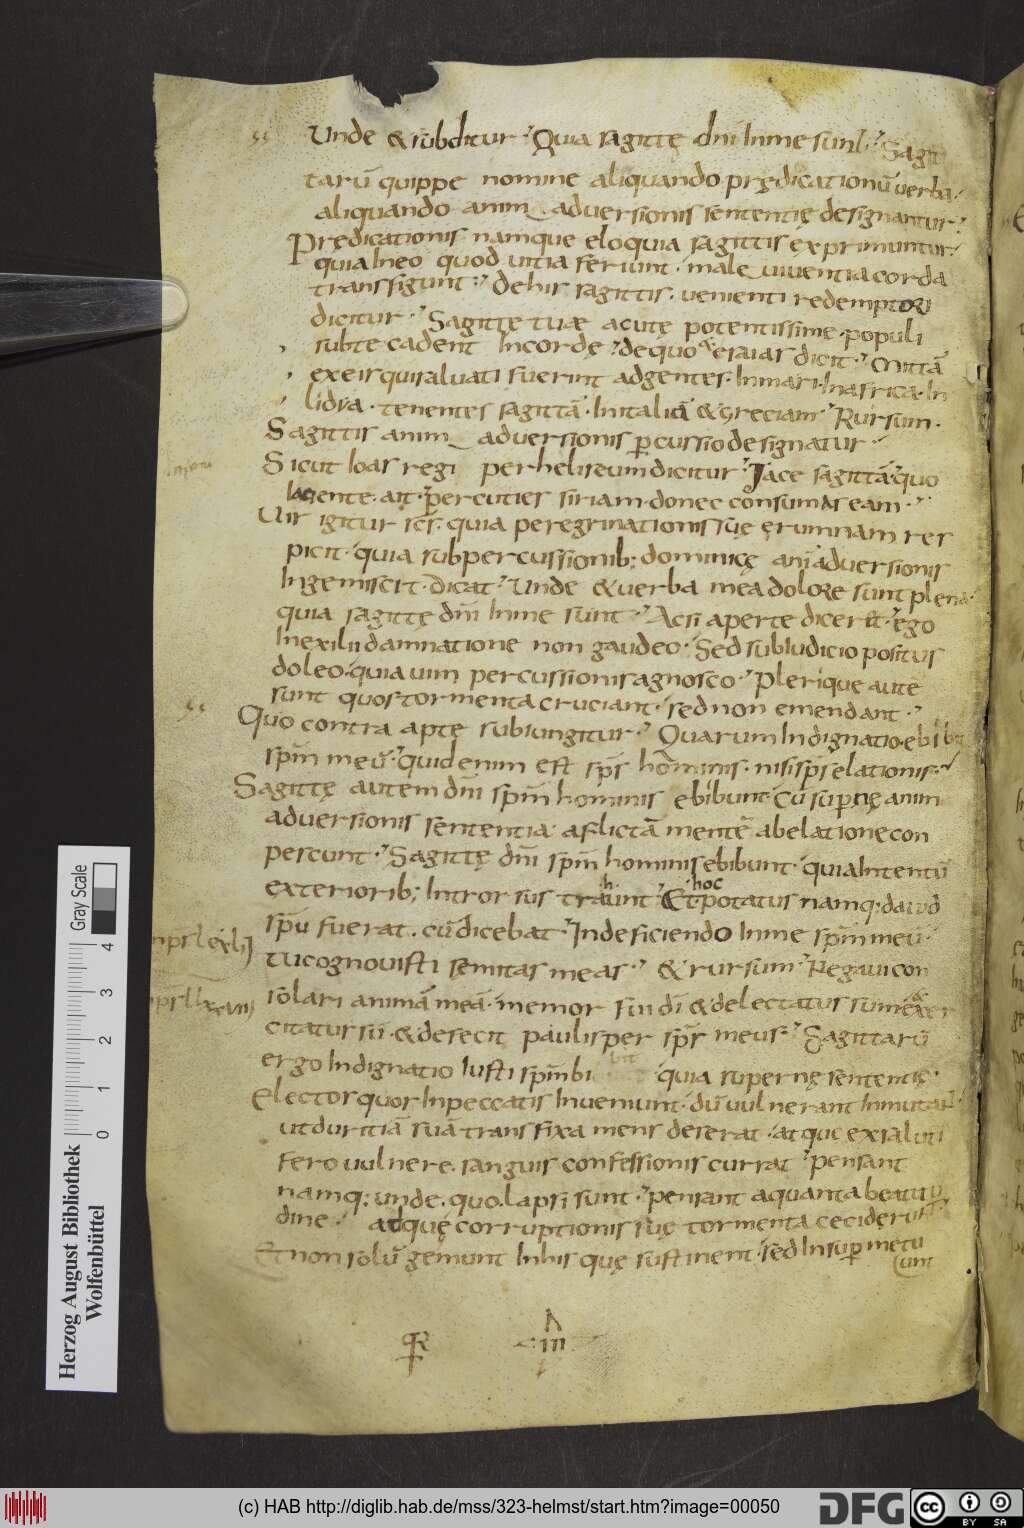 Unde & subditur. Quia sagittę dnī In me sunt. Sagit
tarū quippe nomine aliquando prędicationū verba.
aliquando anim adversionis sententię designantur.
Prędicationis namque eloquia sagittis exprimuntur.
quia In eo quod vitia feriunt. male viventia corda
transfigunt. de his sagittis. venienti redemptori
dicitur. Sagittę tuæ acutę potentissime. populi
sub te cadent In corde. de quo esaias dicit. Mittā
ex eis qui salvati fuerint ad gentes. In mari. In africa. In
lidia. tenentes sagittā. In italiā & greciam. Rursum.
Sagittis anim adversionis ꝑcussio designatur.
Sicut Ioas regi per heliseum dicitur. Jace sagittā. quo
Iaciente. ait. percuties siriam. donec consumas eam.
Vir igitur scs. quia peregrinationis suę ęrumnam res
picit. quia sub percussionib; dominicę animadversionis
Ingemiscit. dicat. Unde & verba mea dolore sunt plena.
quia sagittę dnī In me sunt. Ac si aperte diceret. ego
In exilii damnatione non gaudeo. Sed sub Iudicio positus
doleo. quia vim percussionis agnosco. Plerique autē
sunt quos tormenta cruciant. sed non emendant.
Quo contra aptę subiungitur. Quarum Indignatio ebibit
spm meū. quid enim est sps hominis. nisi sps elationis.
Sagittę autem dnī spm hominis ebibunt. cū supernę anim
adversionis sententia. aflictā mentē ab elatione con
pescunt. Sagittę dnī spm hominis ebibunt. quia Intentū
exteriorib; Introrsus trahunt. Et hoc potatus namq; david
spū fuerat. cū dicebat. In deficiendo In me spm meū
tu cognovisti sęmitas meas. & rursum. Negavi con
solari animā meā. memor fui dī & delectatus sum. exer
citatus sū. & defecit paulisper sps meus. Sagittarū
ergo Indignatio Iusti spm bibit quia supernę sententię.
Electos quos In peccatis Inveniunt. dū vulnerant Inmutant.
ut duritiā suā transfixa mens deserat. atque ex saluti
fero vulnere. sanguis confessionis currat. Pensant
namq; unde. quo lapsi sunt. pensant a quanta beatitu
dine. ad quę corruptionis suę tormenta ceciderunt.
Et non solū gemunt In his quę sustinent. sed Insuper metu
unt
Gray Scale
4
3
2
1
0
Herzog August Bibliothek
Wolfenbüttel
(c) HAB http://diglib.hab.de/mss/323-helmst/start.htm?image=00050
DFG
cc
BY SA